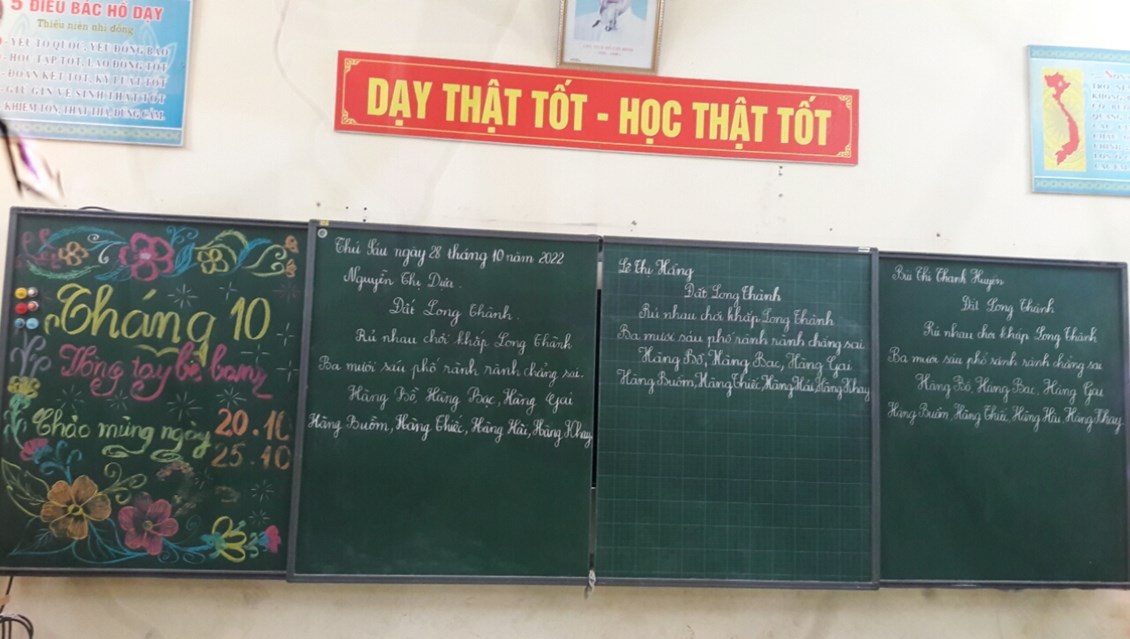 5 ĐIỀU BÁC HỒ DẠY
Thiếu niên nhi đồng
- YÊU TỔ QUỐC, YÊU ĐỒNG BÀO
- HỌC TẬP TỐT, LAO ĐỘNG TỐT
- ĐOÀN KẾT TỐT, KỶ LUẬT TỐT
- GIỮ GÌN VỆ SINH THẬT TỐT
- KHIÊM TỐN, THẬT THÀ, DŨNG CẢM.
DẠY THẬT TỐT - HỌC THẬT TỐT
Tháng 10
Vòng tay bè bạn
Chào mừng ngày 20.10
25.10
Thứ Sáu ngày 28 tháng 10 năm 2022
Nguyễn Thị Dứa.
Đất Long Thành.
Rủ nhau chơi khắp Long Thành
Ba mươi sáu phố rành rành chẳng sai.
Hàng Bồ, Hàng Bạc, Hàng Gai
Hàng Buồm, Hàng Thiếc, Hàng Hài, Hàng Khay
Lê Thị Hằng
Đất Long Thành
Rủ nhau chơi khắp Long Thành
Ba mươi sáu phố rành rành chẳng sai
Hàng Bồ, Hàng Bạc, Hàng Gai
Hàng Buồm, Hàng Thiếc, Hàng Hài, Hàng Khay
Bùi Thị Thanh Huyền
Đất Long Thành
Rủ nhau chơi khắp Long Thành
Ba mươi sáu phố rành rành chẳng sai
Hàng Bồ, Hàng Bạc, Hàng Gai
Hàng Buồm, Hàng Thiếc, Hàng Hài, Hàng Khay